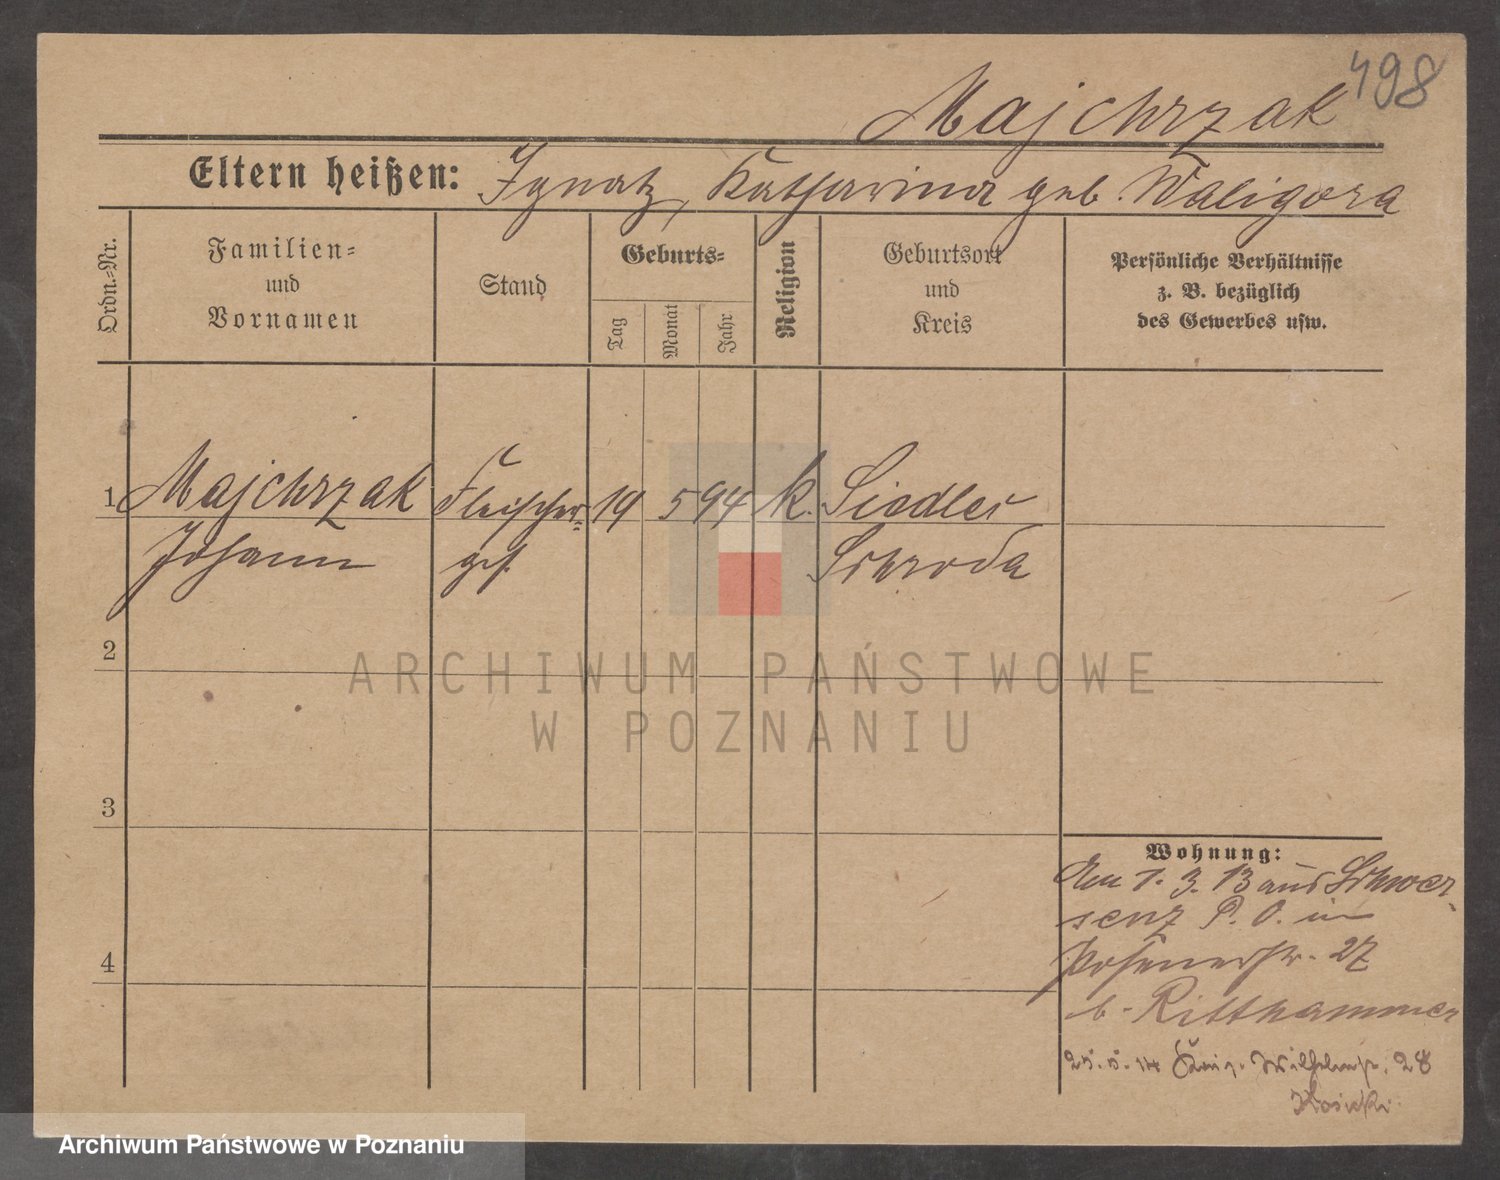 498
Majchrzak
Eltern heißen: Ignatz, Katharina geb. Waligora
Ordn.-Nr.
Familien-
und
Vornamen
Stand
Geburts-
Tag
Monat
Jahr
Religion
Geburtsort
und
Kreis
Persönliche Verhältnisse
z. B. bezüglich
des Gewerbes usw.
1 Majchrzak Fleischer- 19 5 94 k. Siedlec
Johann ges. Schroda
2
3
4
Wohnung:
Am 1. 3. 13 aus Schwer-
senz P. O. in
Posenerstr. 27
b. Ritthammer
25. 5. 14 Wilhelmstr. 28
Kosicki.
ARCHIWUM PAŃSTWOWE
W POZNANIU
Archiwum Państwowe w Poznaniu